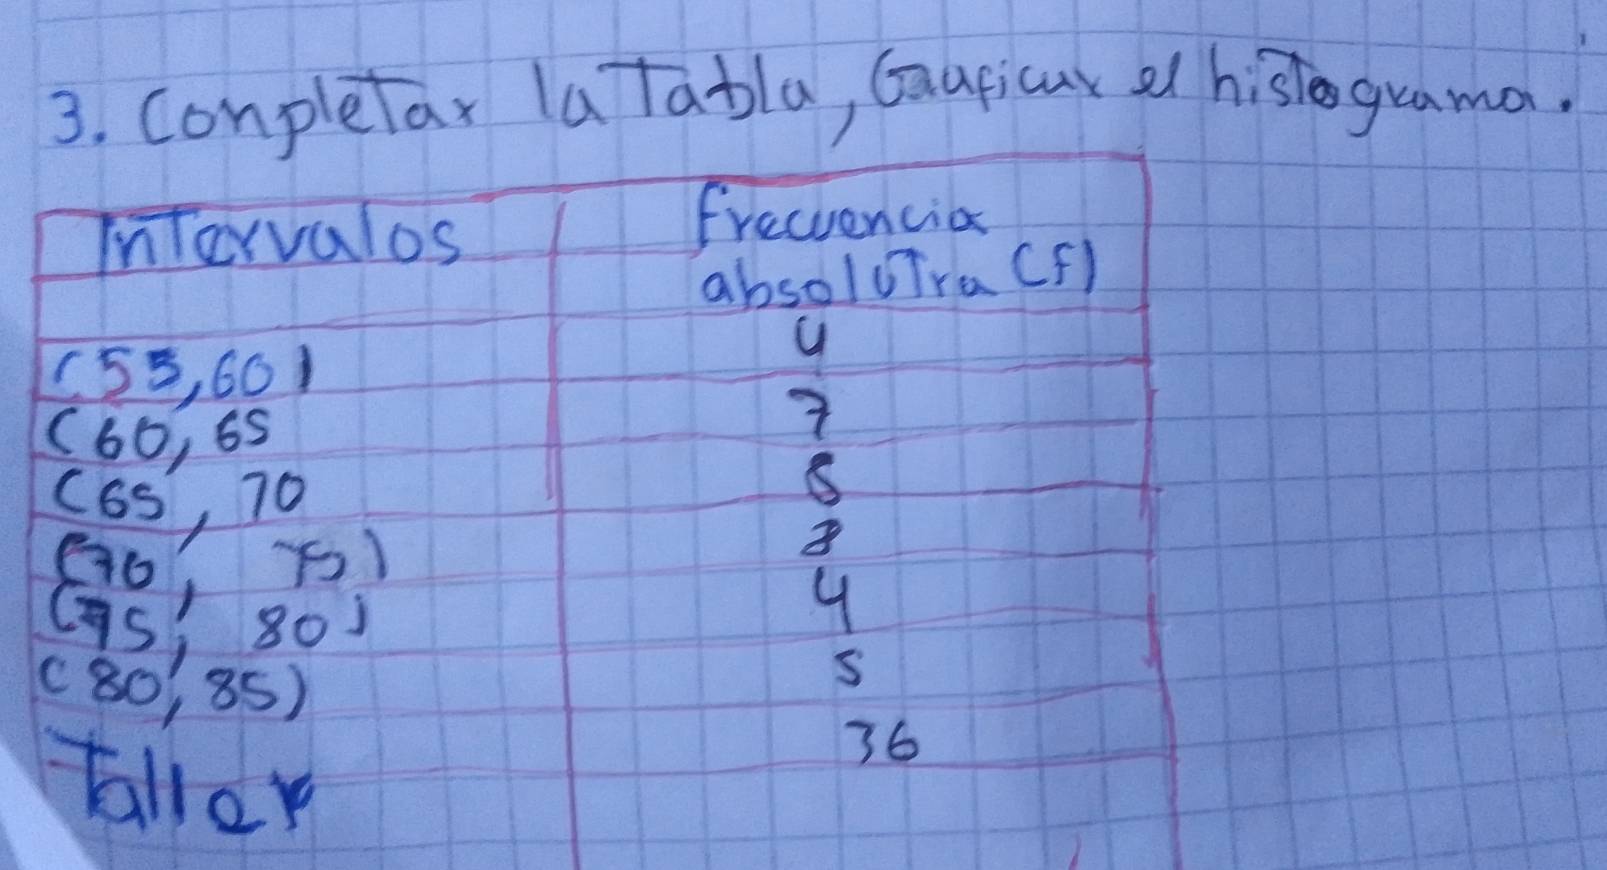 3. Conpletar la Tabla, Graficar el histograma.
Intervalos frecuencia
absolutra (f)
4
(55,60)
7
(60, 65
(65, 70
8
(70, 75)
4
(75, 80)
5
(80, 85)
36
Taller